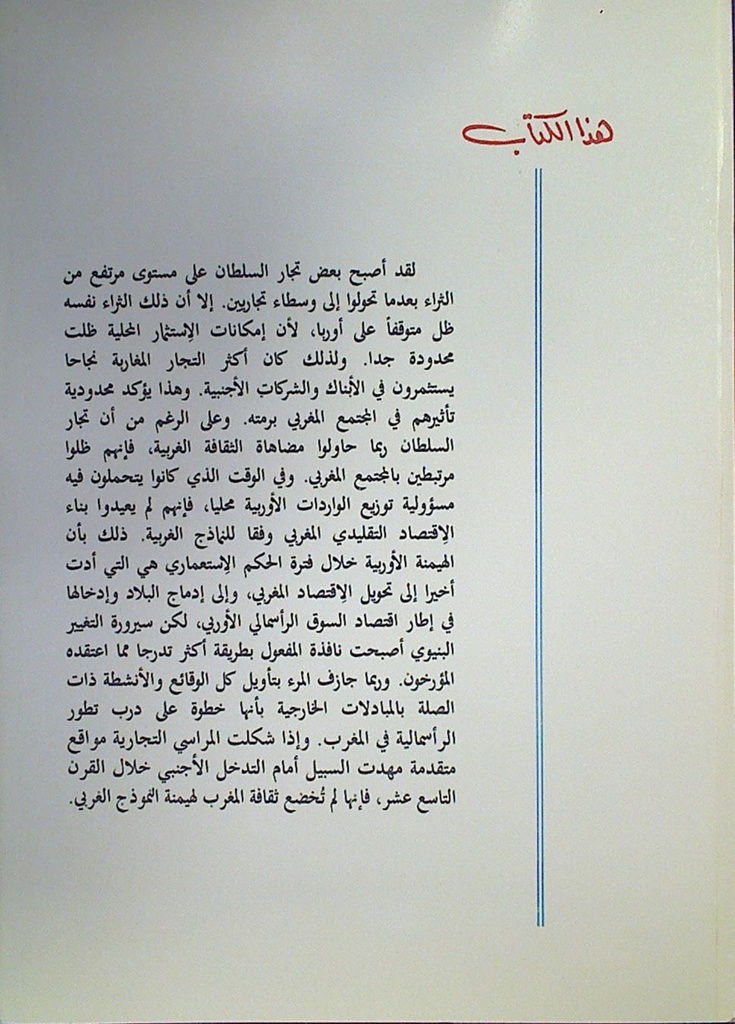 هذا الكتاب
لقد أصبح بعض تجار السلطان على مستوى مرتفع من
الثراء بعدما تحولوا إلى وسطاء تجاريين. إلا أن ذلك الثراء نفسه
ظل متوقفاً على أوربا، لأن إمكانات الإستثمار المحلية ظلت
محدودة جدا. ولذلك كان أكثر التجار المغاربة نجاحا
يستثمرون في الأبناك والشركات الأجنبية. وهذا يؤكد محدودية
تأثيرهم في المجتمع المغربي برمته. وعلى الرغم من أن تجار
السلطان ربما حاولوا مضاهاة الثقافة الغربية، فإنهم ظلوا
مرتبطين بالمجتمع المغربي. وفي الوقت الذي كانوا يتحملون فيه
مسؤولية توزيع الواردات الأوربية محليا، فإنهم لم يعيدوا بناء
الإقتصاد التقليدي المغربي وفقا للنماذج الغربية. ذلك بأن
الهيمنة الأوربية خلال فترة الحكم الإستعماري هي التي أدت
أخيرا إلى تحويل الإقتصاد المغربي، وإلى إدماج البلاد وإدخالها
في إطار اقتصاد السوق الرأسمالي الأوربي، لكن سيرورة التغيير
البنيوي أصبحت نافذة المفعول بطريقة أكثر تدرجا مما اعتقده
المؤرخون. وربما جازف المرء بتأويل كل الوقائع والأنشطة ذات
الصلة بالمبادلات الخارجية بأنها خطوة على درب تطور
الرأسمالية في المغرب. وإذا شكلت المراسي التجارية مواقع
متقدمة مهدت السبيل أمام التدخل الأجنبي خلال القرن
التاسع عشر، فإنها لم تُخضع ثقافة المغرب لهيمنة النموذج الغربي.